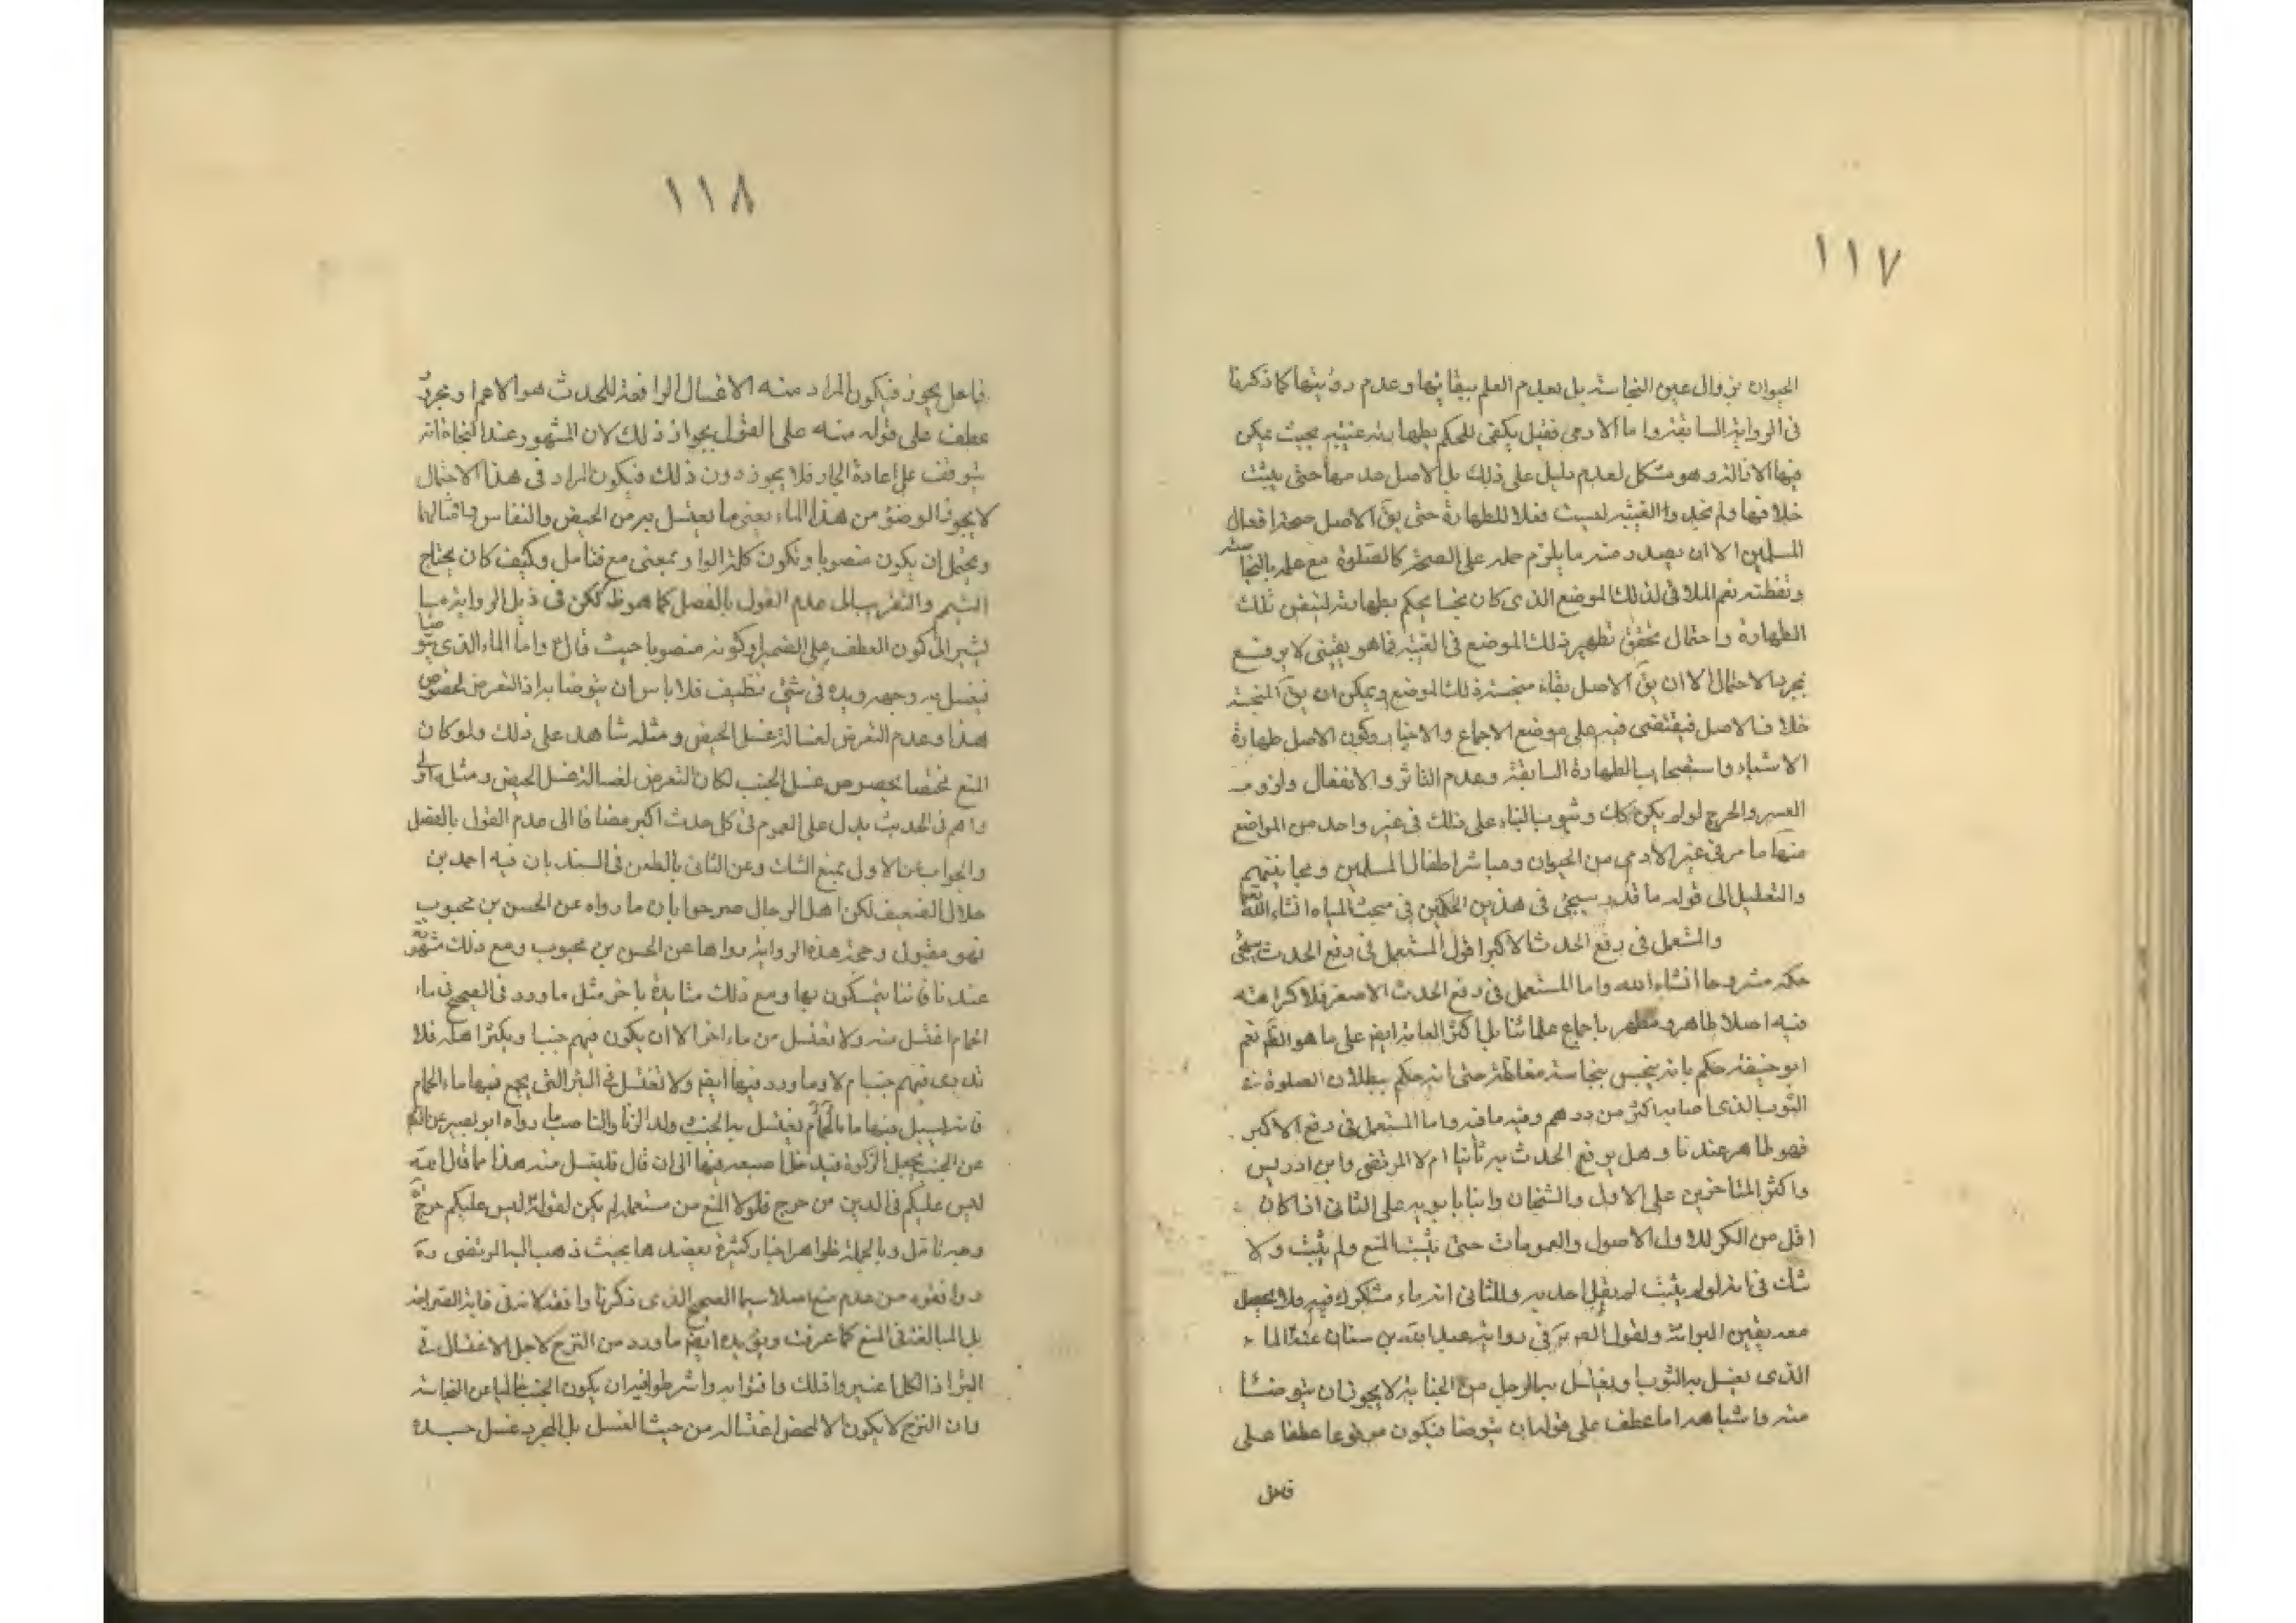 ١١٧
الحيوان بزوال عين النجاسة بل بعدم العلم ببقائها وعدم رؤيتها كما ذكرنا
فى الرواية السابقة واما الادمى فقيل يكفى للحكم بطهارته غيبته بحيث يمكن
فيها الازالة وهو مشكل لعدم دليل على ذلك بل الاصل عدمها حتى يثبت
خلافها ولم نجد والغيبة ليست فعلا للطهارة حتى يق الاصل صحة افعال
المسلمين الا ان يصدر منه ما يلزم حمله على الصحة كالصلوة مع علمه بالنجاسة
وتفطنه نعم الملاقى لذلك الموضع الذى كان نجسا يحكم بطهارته لتيقن تلك
الطهارة واحتمال تحقق تطهير ذلك الموضع فى الغيبة فما هو يقينى لا يرفع
بمجرد الاحتمال الا ان يق الاصل بقاء منجسية ذلك الموضع ويمكن ان يق المنجسية
خلاف الاصل فيقتضى فيه على موضع الاجماع والاخبار وكون الاصل طهارة
الاشياء واستصحاب الطهارة السابقة وعدم التاثر والانفعال ولزوم
العسر والحرج لو لم يكن كك وثبوت البناء على ذلك فى غير واحد من المواضع
منها ما مر فى غير الادمى من الحيوان ومباشر اطفال المسلمين ومجانينهم
والتعليل الى قوله ما قد سيجئ فى هذين الحكمين فى مبحث المياه انشاء الله تعا
والمستعمل فى رفع الحدث الاكبر اقول المستعمل فى رفع الحدث سيجئ
حكمه مشروحا انشاء الله واما المستعمل فى رفع الحدث الاصغر فلا كراهة
فيه اصلا طاهر ومطهر باجماع علمائنا بل اكثر العامة ايض على ما هو الظ نعم
ابو حنيفة حكم بانه ينجس بنجاسة مغلظة حتى انه حكم ببطلان الصلوة فى
الثوب الذى اصابه اكثر من درهم وفيه ما فيه واما المستعمل فى رفع الاكبر
فهو طاهر عندنا وهل يرفع الحدث به ثانيا ام لا المرتضى وابن ادريس
واكثر المتاخرين على الاول والشيخان وابنا بابويه على الثانى اذا كان
اقل من الكر للاول الاصول والعمومات حتى يثبت المنع ولم يثبت ولا
شك فى انه لو لم يثبت لم يقل احد به وللثانى انه ماء مشكوك فيه فلا يحصل
معه يقين البرائة ولقول الص فى رواية عبد الله بن سنان عنه الماء
الذى يغسل به الثوب او يغتسل به الرجل من الجنابة لا يجوز ان يتوضأ
منه واشباهه اما عطف على قوله ان يتوضا فيكون مرفوعا عطفا على
فاعل
١١٨
فاعل يجوز فيكون المراد منه الاغسال الرافعة للحدث هو الاعم او مجرد
عطف على قوله منه على القول بجواز ذلك لان المشهور عند النحاة انه
يتوقف على اعادة الجار فلا يجوز دون ذلك فيكون المراد فى هذا الاحتمال
لا يجوز الوضوء من هذا الماء يعنى ما يغتسل به من الحيض والنفاس وامثالهما
ويحتمل ان يكون منصوبا وتكون كلمة الواو بمعنى مع فتامل وكيف كان يحتاج
التتميم والتقريب الى عدم القول بالفصل كما هو ظ لكن فى ذيل الرواية ما
يشير الى كون العطف على الضمير او كونه منصوبا حيث قال ع واما الماء الذى يتوضا
فيغسل به وجهه ويده فى شئ نظيف فلا باس ان يتوضا به اذ التعرض لخصوص
هذا وعدم التعرض لغسالة غسل الحيض ومثله شاهد على ذلك ولو كان
المنع مختصا بخصوص غسل الجنب لكان التعرض لغسالة غسل الحيض ومثله اولى
واهم فى الحديث يدل على العموم فى كل حدث اكبر مضافا الى عدم القول بالفصل
والجواب عن الاول بمنع الشك وعن الثانى بالطعن فى السند بان فيه احمد بن
هلال الضعيف لكن اهل الرجال صرحوا بان ما رواه عن الحسن بن محبوب
فهو مقبول وحجة هذه الرواية رواها عن الحسن بن محبوب ومع ذلك مشهورة
عندنا فاننا يتمسكون بها ومع ذلك متايدة باخر مثل ما ورد فى الصحيح فى ماء
الحمام اغتسل منه ولا تغتسل من ماء اخر الا ان يكون فيهم جنبا ويكثر اهله فلا
تدرى فيهم جنبا ام لا وما ورد فيها ايض ولا تغتسل فى البئر التى يجمع فيها ماء الحمام
فانه يسيل فيها ما يغتسل به الجنب وولد الزنا والناصب وما رواه ابو بصير عن الص
عن الجنب يجعل الركوة فيدخل اصبعه فيها الى ان قال فليغتسل منه هذا مما قال الله
ليس عليكم فى الدين من حرج فلولا المنع من مستعمله لم يكن لقوله ليس عليكم حرج
وجه تامل وبالجملة ظواهر اخبار كثيرة يعضدها بحيث ذهب اليه المرتضى ره
ووافقوه من عدم منع اصلا سيما الصحيح الذى ذكرنا وافقه لانه فى غاية الصراحة
بل المبالغة فى المنع كما عرفت ويؤيده ايض ما ورد من النزح لاجل الاغتسال فى
البئر اذ الكل اعتبروا ذلك وافتوا به واشرطوا فيه ان يكون الجنب خاليا عن النجاسة
وان النزح لا يكون الا لمحض اغتساله من حيث الغسل بل لمجرد غسل جسده